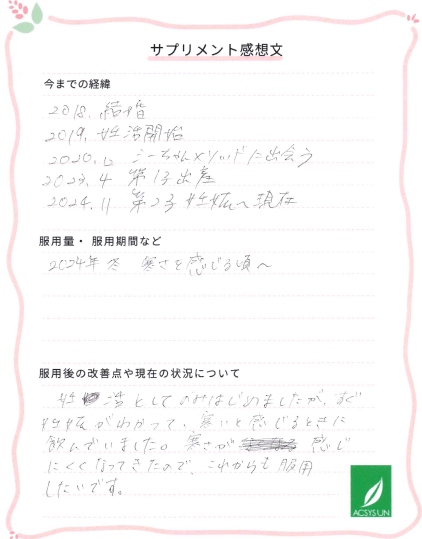 サプリメント感想文
今までの経緯
2018. 結婚
2019. 妊活開始
2020.12 こーちゃんメソッドに出会う
2023.4 第1子出産
2024.11 第2子妊娠へ現在
服用量・服用期間など
2024年冬 寒さを感じる頃〜
服用後の改善点や現在の状況について
妊活としてのみはじめましたが、すぐ
妊娠がわかって、寒いと感じるときに
飲んでいました。寒さが感じ
にくくなってきたので、これからも服用
したいです。
ACSYS UN